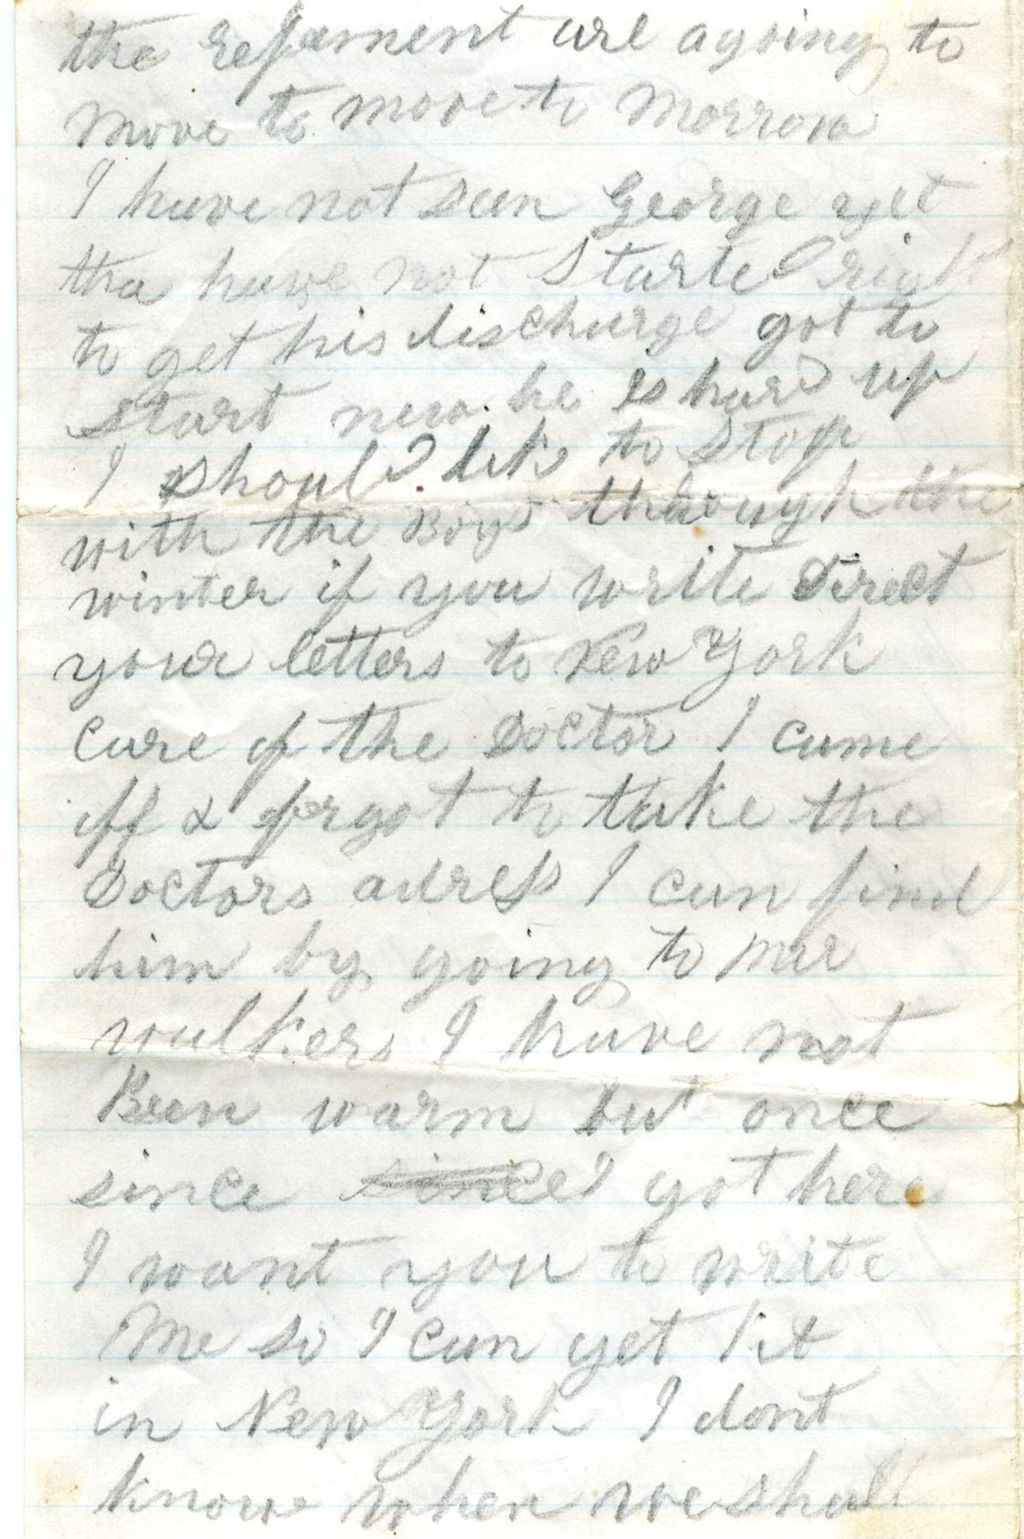 the regement are agoing to
Move to move to Morrow
I have not seen George yet
tha have not Started right
to get his discharge got to
Start new. he is hard up
I should like to stop
with the Boys through the
winter if you write direct
your letters to New York
Care of the Doctor I came
off & forgot to take the
Doctors adress I can find
him by going to Mr
walkers I have not
Been warm but once
since since I got here
I want you to write
Me so I can get it
in New York I dont
know when we shall